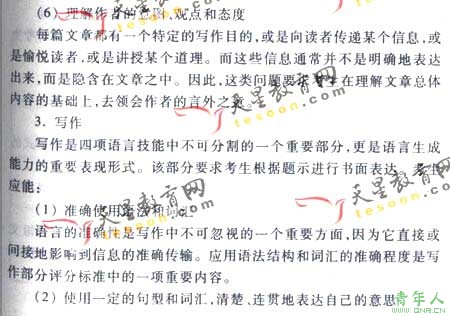 (6) 理解作者的意图、观点和态度
每篇文章都有一个特定的写作目的,或是向读者传递某个信息,或
是愉悦读者,或是讲授某个道理。而这些信息通常并不是明确地表达
出来,而是隐含在文章之中。因此,这类问题要求考生在理解文章总体
内容的基础上,去领会作者的言外之意。
3. 写作
写作是四项语言技能中不可分割的一个重要部分,更是语言生成
能力的重要表现形式。该部分要求考生根据题示进行书面表达。考生
应能:
(1) 准确使用语法和词汇
语言的准确性是写作中不可忽视的一个重要方面,因为它直接或
间接地影响到信息的准确传输。应用语法结构和词汇的准确程度是写
作部分评分标准中的一项重要内容。
(2) 使用一定的句型和词汇,清楚、连贯地表达自己的意思
天星教育网
tesoon.com
天星教育网
tesoon.com
天星教育网
tesoon.com
青年人
www.QNR.CN